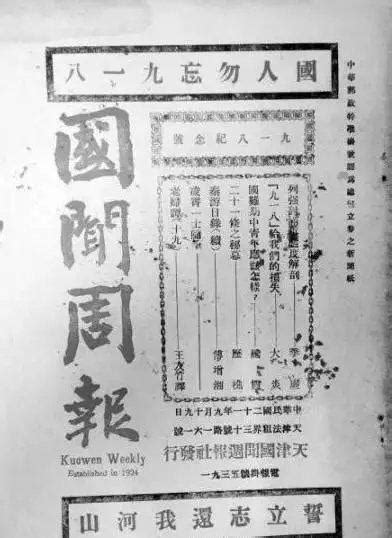 國人勿忘九一八
中華郵政特准掛號認爲總包立券之新聞紙
九一八紀念號
列強對度解剖
「九一八」給我們的損失 大炎
國難期中青年應該怎樣？
二十一條之秘幕 歷樵
秦游日錄(續) 傅增湘
一士隨
老婦譚(十九) 王友竹譯
國聞周報
Kuowen Weekly
Established in 1924
中華民國二十一年九月十九日
天津法租界三十號路一六一號
天津國聞週報社發行
電報掛號五三九一
誓立志還我河山